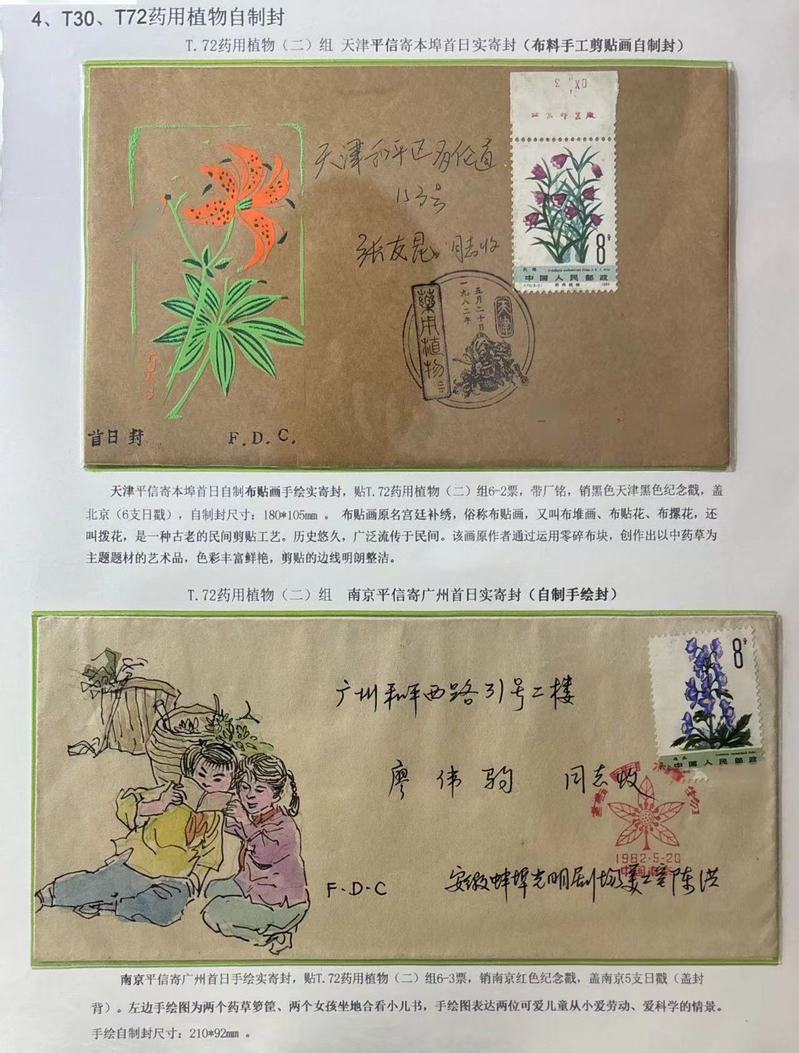 4、T30、T72药用植物自制封
T.72药用植物（二）组 天津平信寄本埠首日实寄封（布料手工剪贴画自制封）
天津和平区多伦道
153号
张友昆 同志收
8分
中国人民邮政
药用植物(二)
一九八二年
五月二十日
天津
首日封 F.D.C.
天津平信寄本埠首日自制布贴画手绘实寄封，贴T.72药用植物（二）组6-2票，带厂铭，销黑色天津黑色纪念戳，盖
北京（6支日戳），自制封尺寸：180*105mm 。 布贴画原名宫廷补绣，俗称布贴画，又叫布堆画、布贴花、布摞花，还
叫拨花，是一种古老的民间剪贴工艺。历史悠久，广泛流传于民间。该画原作者通过运用零碎布块，创作出以中药草为
主题题材的艺术品，色彩丰富鲜艳，剪贴的边线明朗整洁。
T.72药用植物（二）组 南京平信寄广州首日实寄封（自制手绘封）
8分
中国人民邮政
广州和平西路31号二楼
廖伟驹 同志收
1982·5·20
中国南京
F·D·C
安徽蚌埠光明剧场美工室陈洪
南京平信寄广州首日手绘实寄封，贴T.72药用植物（二）组6-3票，销南京红色纪念戳，盖南京5支日戳（盖封
背）。左边手绘图为两个药草箩筐、两个女孩坐地合看小儿书，手绘图表达两位可爱儿童从小爱劳动、爱科学的情景。
手绘自制封尺寸：210*92mm 。